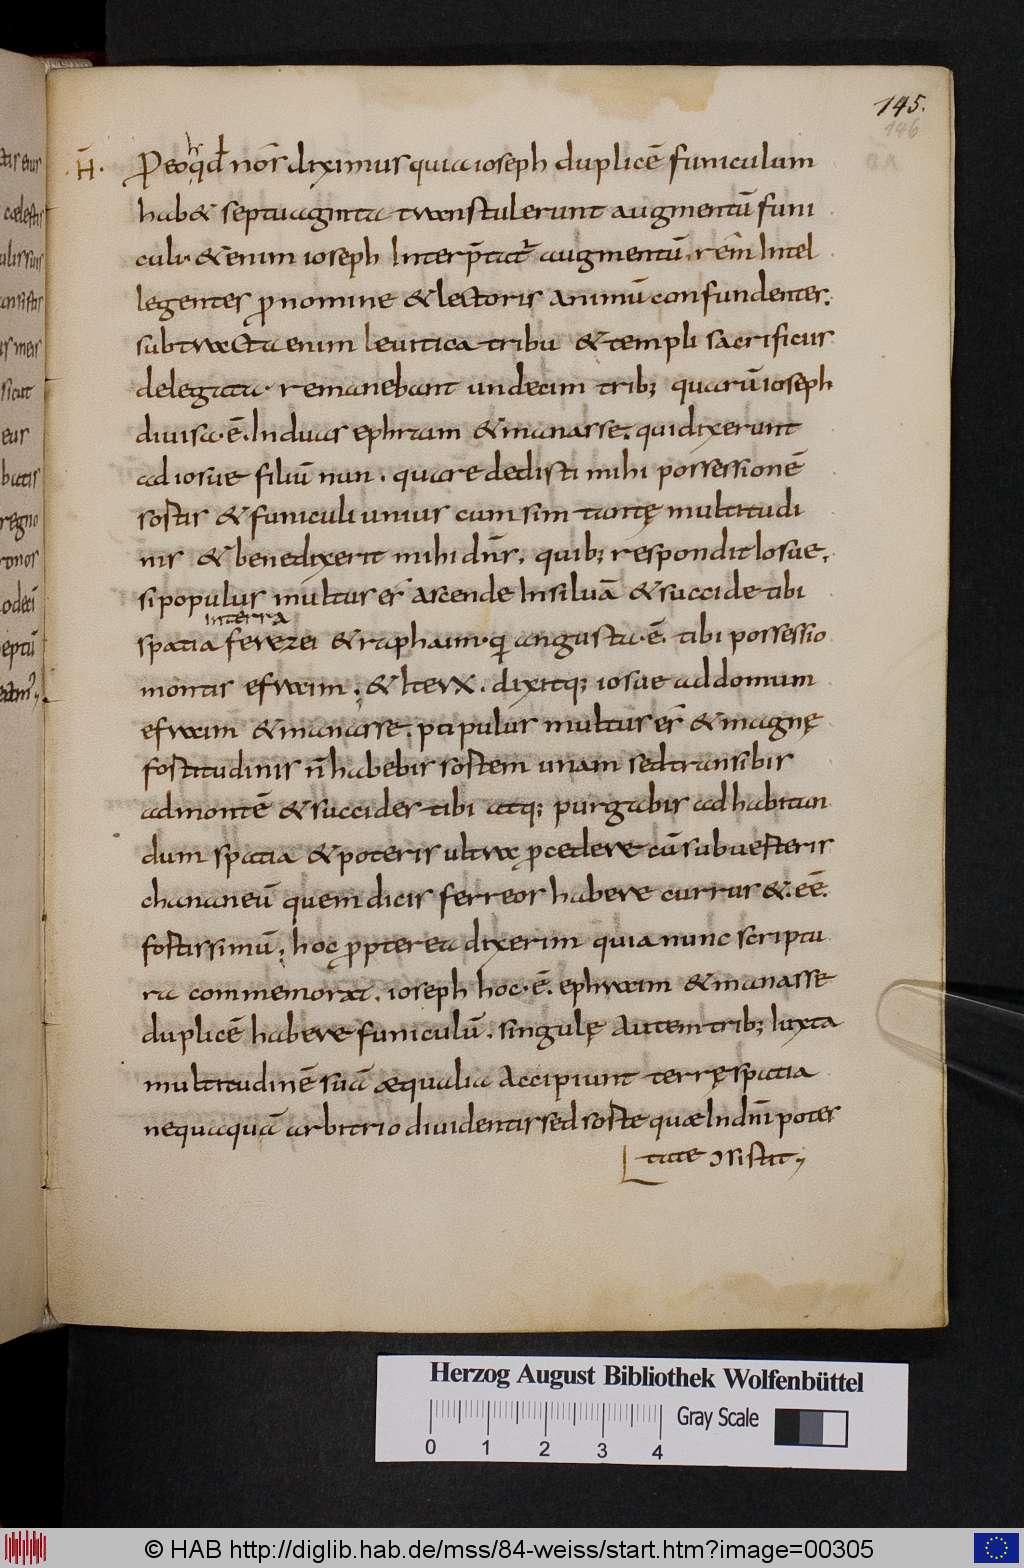 145.
146
H̄.
Peo qđ nor̄ diximus quia ioseph duplicē funiculum
hab& septuaginta transtulerunt augmentū funi
culi· &enim ioseph Interp̄tat̉ augmentū, rem̄ Intel
legentes p nomine &lectoris animū confundentes.
subtracta enim leuitica tribu &templi sacrificiis
delegata· remanebant undecim trib; quarū ioseph
diuisa·ē·In duas ephraim &manasse. qui dixerunt
ad iosue filiū nun. quare dedisti mihi possessionē
sortis &funiculi unius cum sim tantę multitudi
nis &benedixerit mihi dn̄s. quib; respondit Iosue,
si populus multus es̄ ascende In siluā &succide tibi
In terra
spatia ferezei &raphaim· q angusta·ē· tibi possessio
montis efraim. &ltera. dixitq; iosue ad domum
efraim &manasse. populus multus es̄ &magnę
fortitudinis n̄ habebis sortem unam sed transibis
ad montē &succides tibi atq; purgabis ad habitan
dum spatia &poteris ultra pcedere cū subuerteris
chananeū quem dicis ferreos habere currus &·eē·
fortissimū; hoc ppterea dixerim quia nunc scriptu
ra commemorat. ioseph hoc·ē· ephraim &manasse
duplicē habere funiculū. singulę autem trib; Iuxta
multitudinē suā æqualia accipiunt terrę spatia
nequaquā arbitrio diuidentis sed sorte quæ In dnī potes
tate ɔsistit,
Herzog August Bibliothek Wolfenbüttel
Gray Scale
0 1 2 3 4
© HAB http://diglib.hab.de/mss/84-weiss/start.htm?image=00305